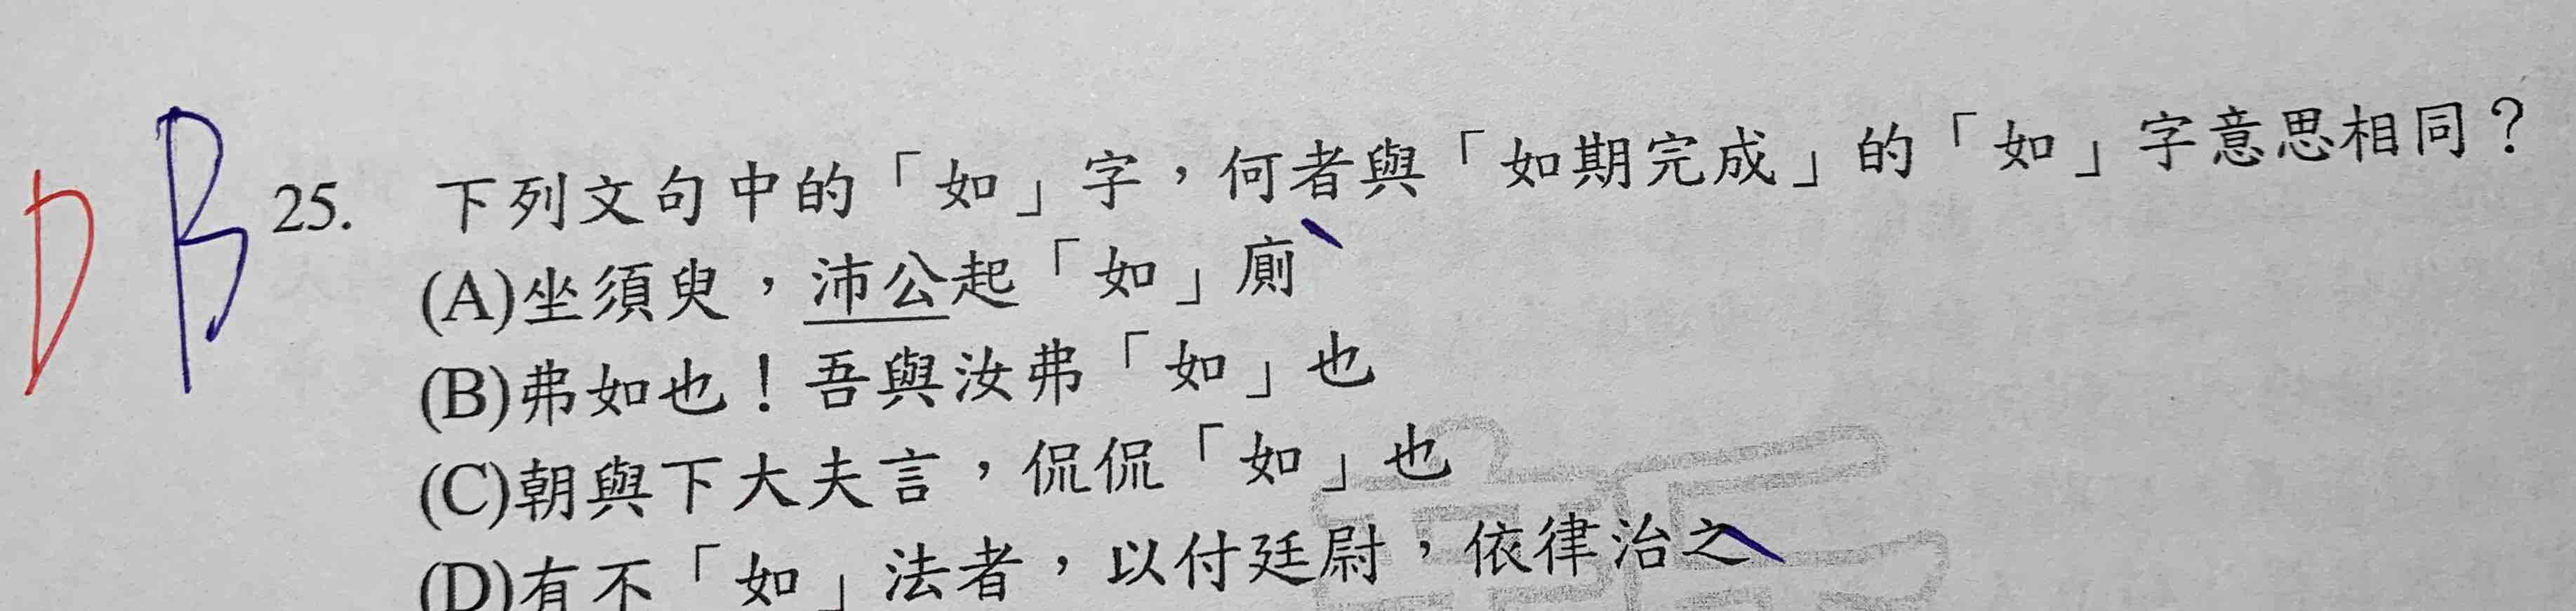 D B 25. 下列文句中的「如」字，何者與「如期完成」的「如」字意思相同？
(A)坐須臾，沛公起「如」廁
(B)弗如也！吾與汝弗「如」也
(C)朝與下大夫言，侃侃「如」也
(D)有不「如」法者，以付廷尉，依律治之